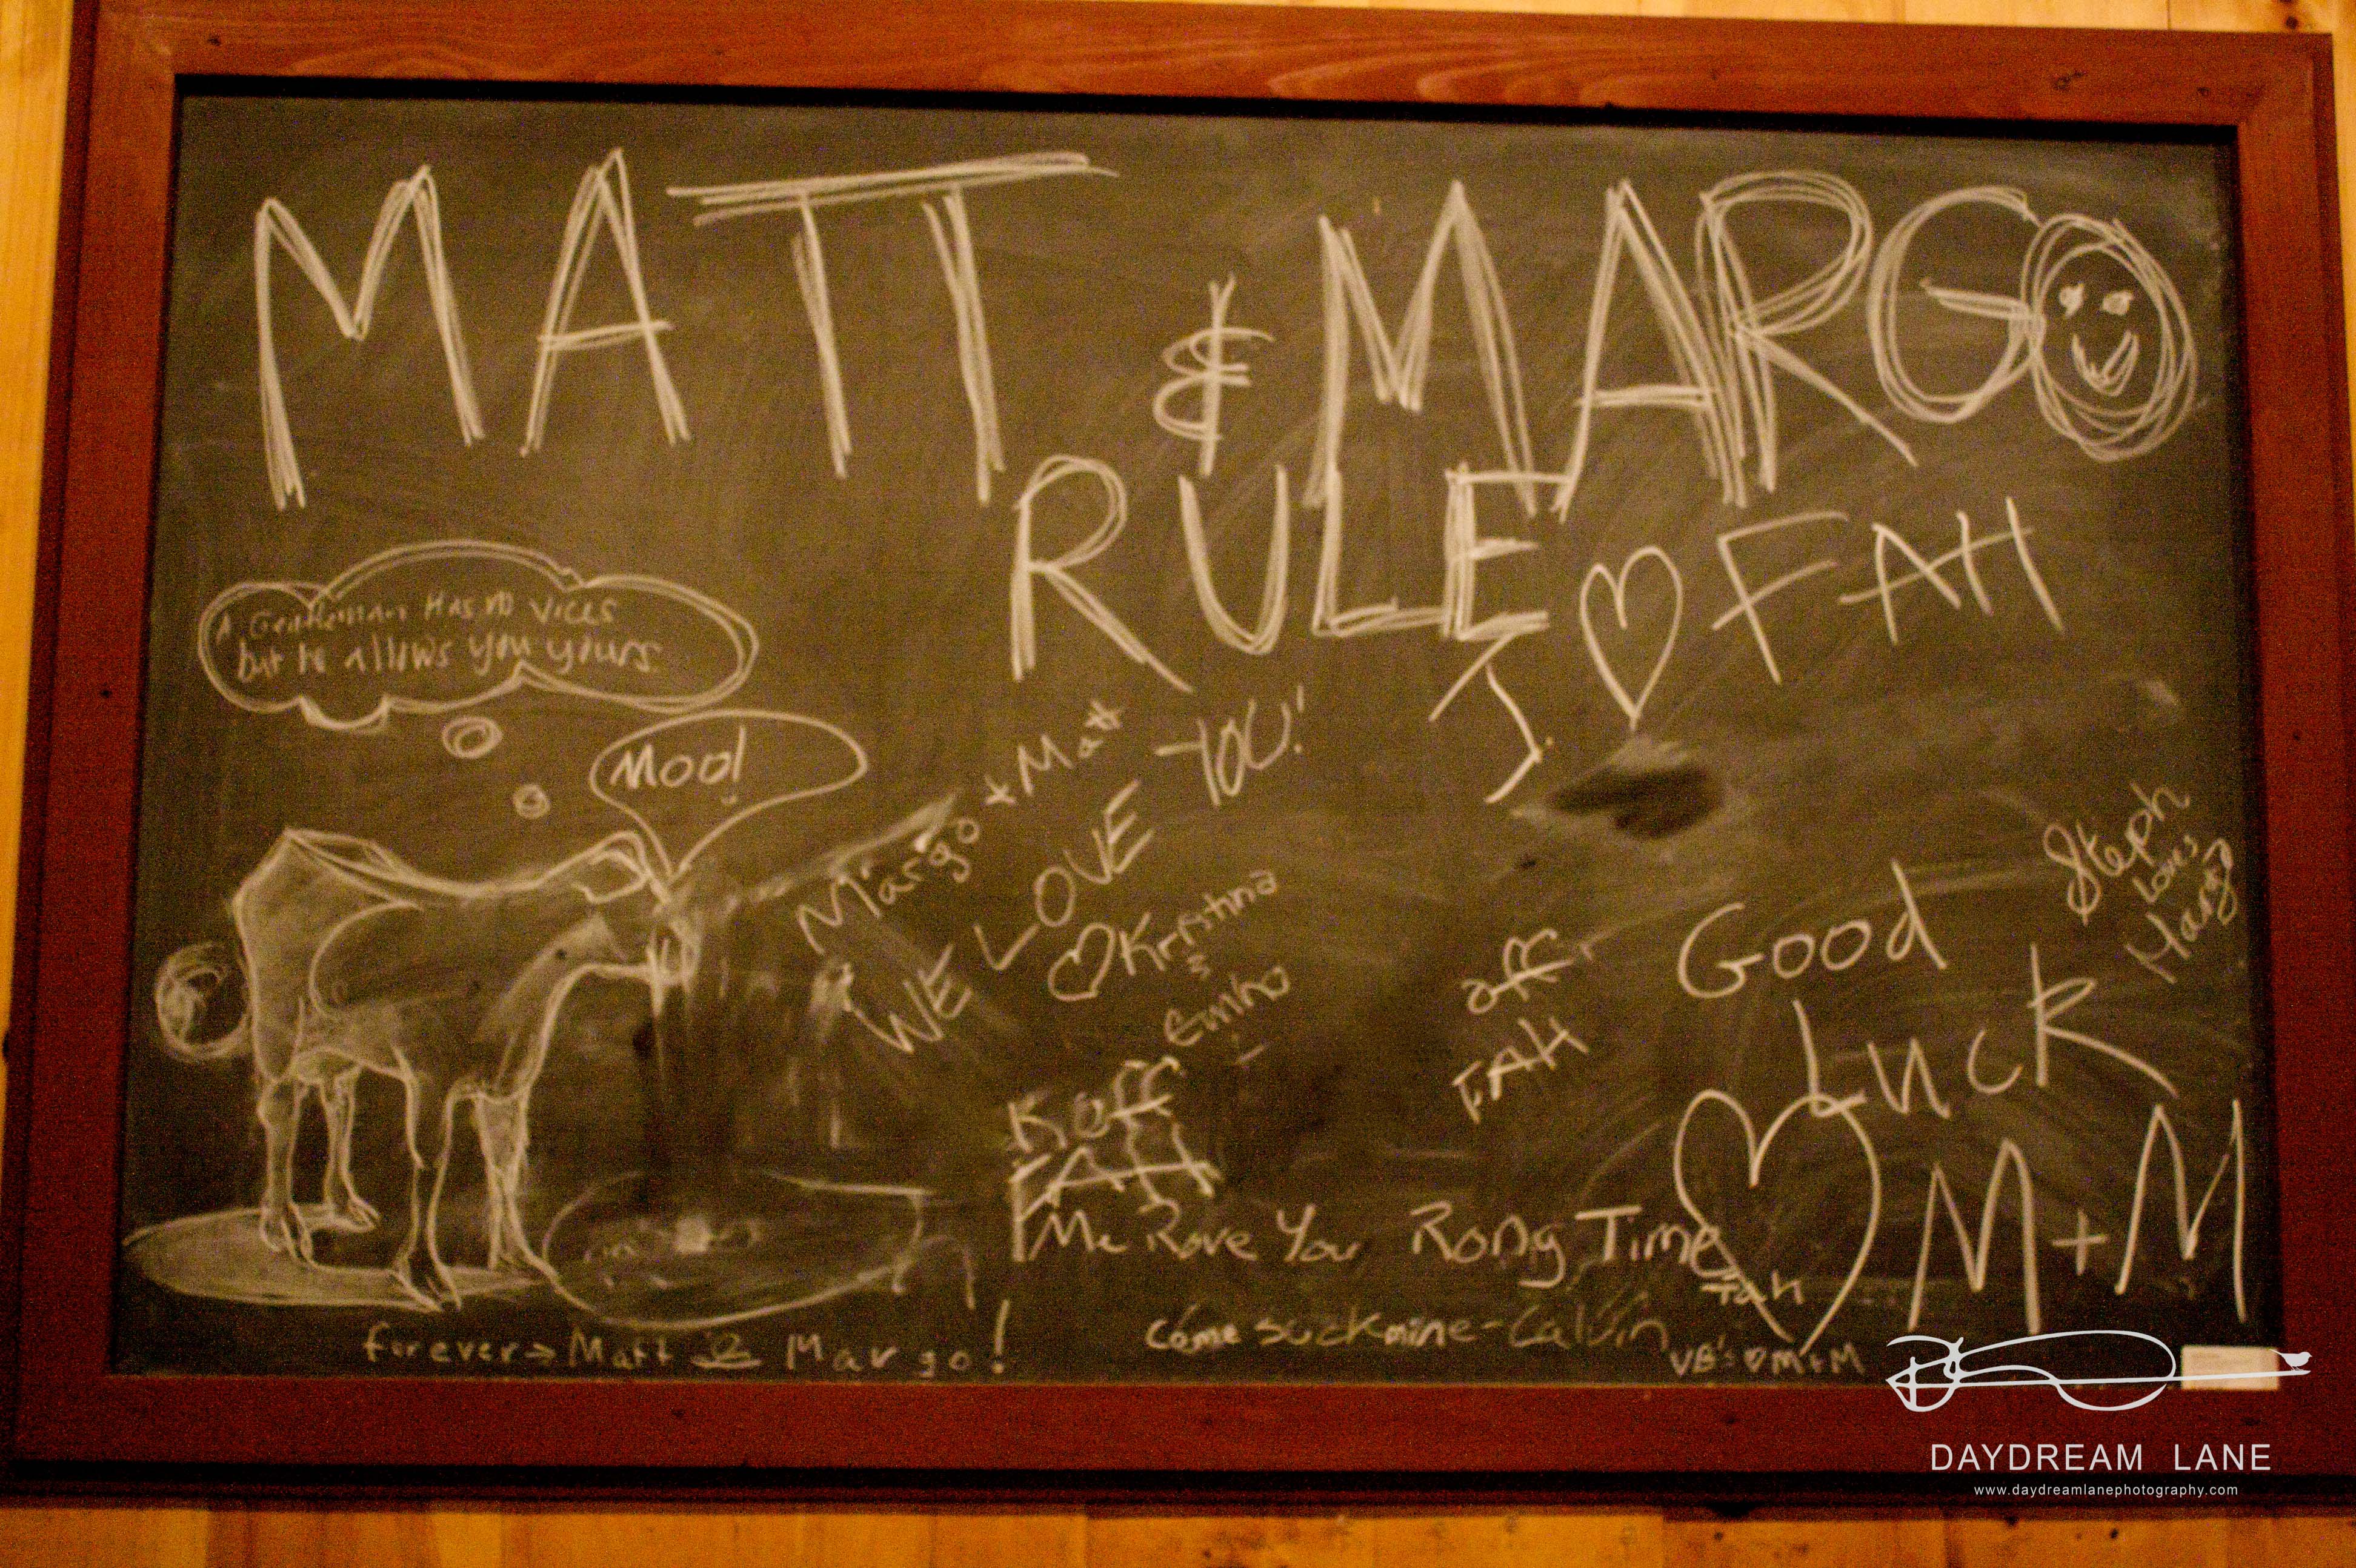 MATT & MARGO
RULE
I ♡ FAH
J.
A Gentleman Has no vices
but he allows you yours
Moo!
Margo + Matt
WE LOVE YOU!
♡ Kristina
Steph
loves
Margo
Good
Luck
♡ M+M
FAH
Keff
FAH
Me Rove You Rong Time
Fah
forever → Matt & Margo!
come suck mine - Calvin
VB's ♡ M+M
DAYDREAM LANE
www.daydreamlanephotography.com